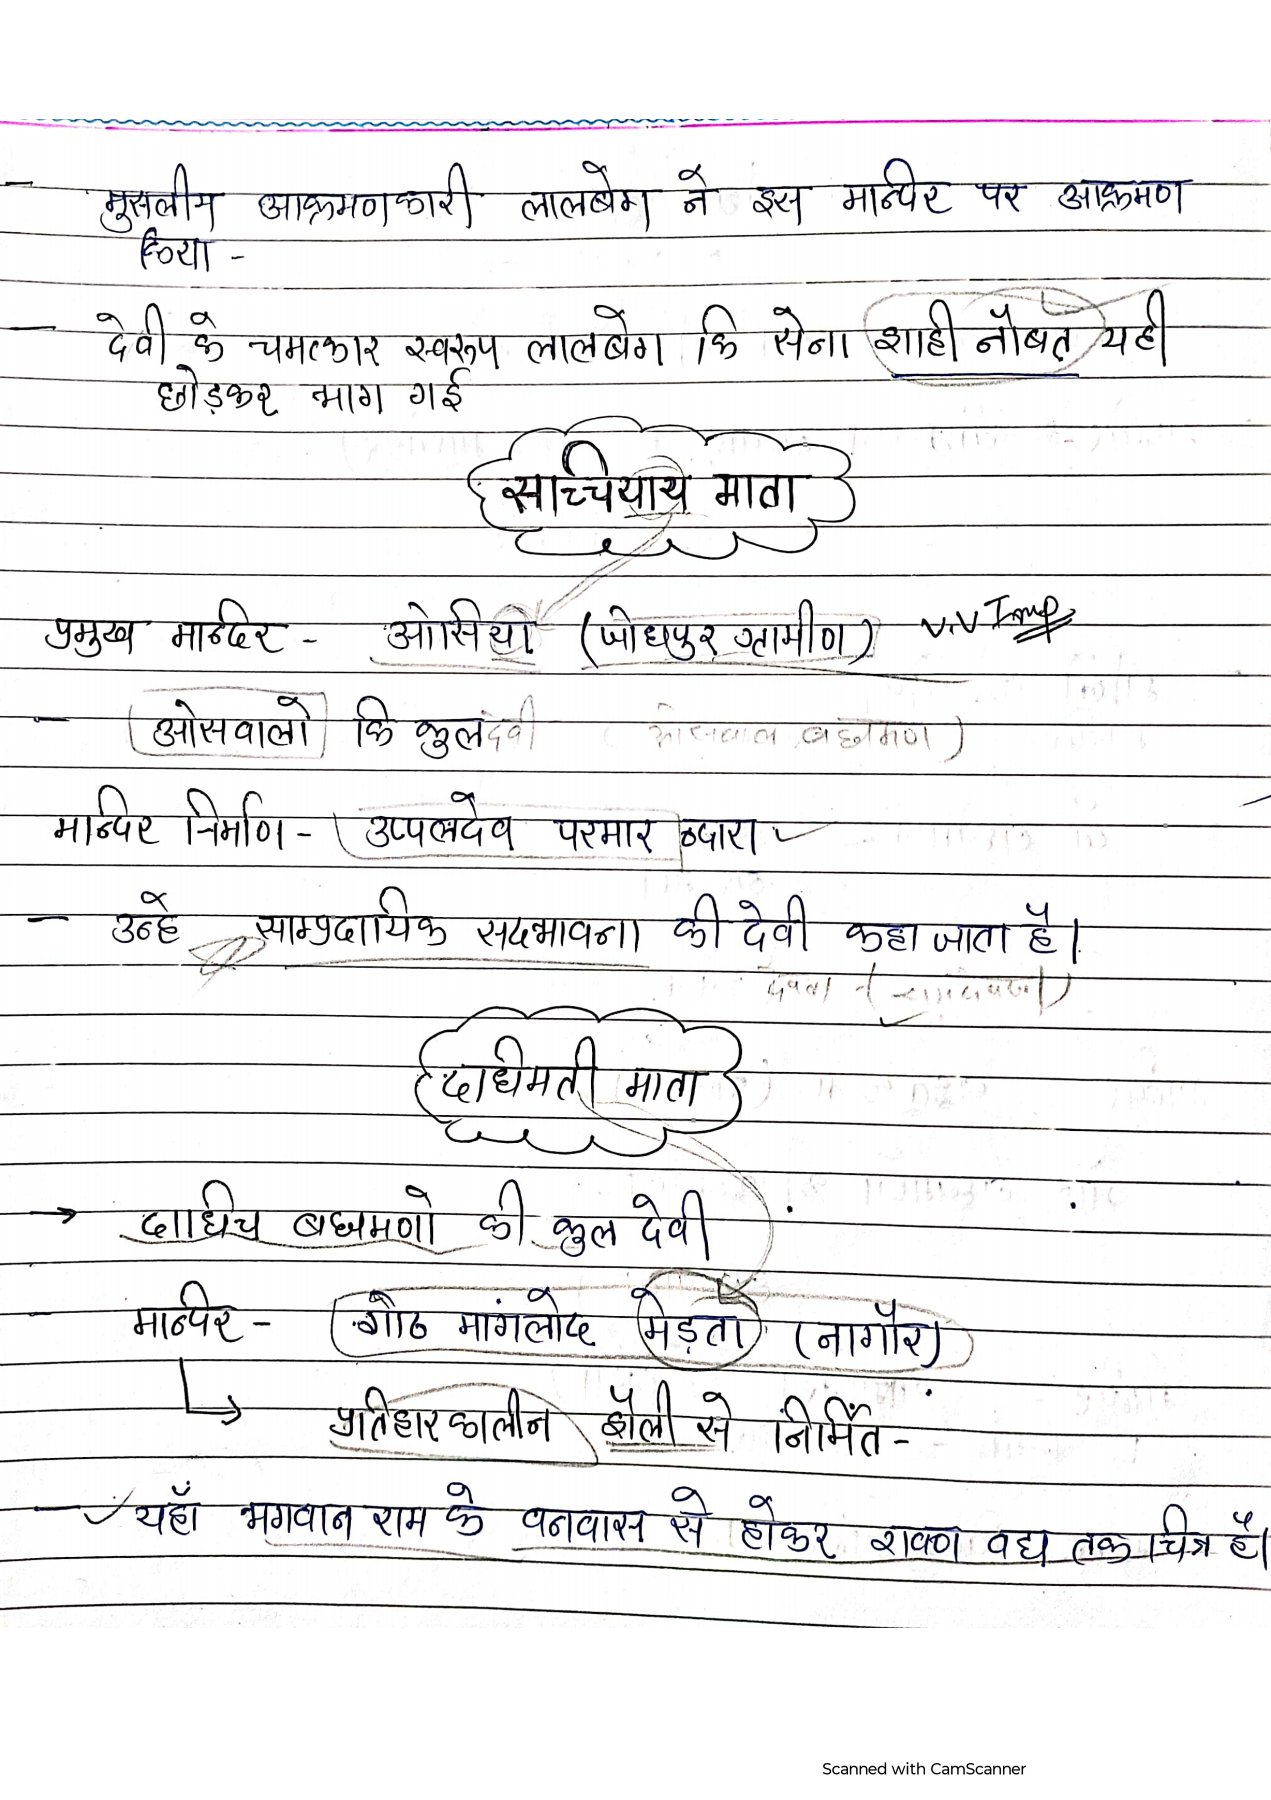 - मुसलीम आक्रमणकारी लालबेग ने इस मन्दिर पर आक्रमण
किया -
- देवी के चमत्कार स्वरूप लालबेग कि सेना शाही नौबत यही
छोड़कर भाग गई
सच्चियाय माता
प्रमुख मन्दिर - ओसियाँ (जोधपुर ग्रामीण) V.V Imp
- ओसवालो कि कुलदेवी (ओसवाल ब्रह्मामण)
मन्दिर निर्माण - उप्पलदेव परमार व्दारा
- उन्हे साम्प्रदायिक सदभावना की देवी कहा जाता है।
देवता
दधिमती माता
→ दाधिच ब्रह्ममणो की कुल देवी
- मन्दिर - गोठ मांगलोद मेड़ता (नागौर)
प्रतिहारकालीन शैली से निर्मित -
- यहाँ भगवान राम के वनवास से होकर रावण वध तक चित्र है।
Scanned with CamScanner